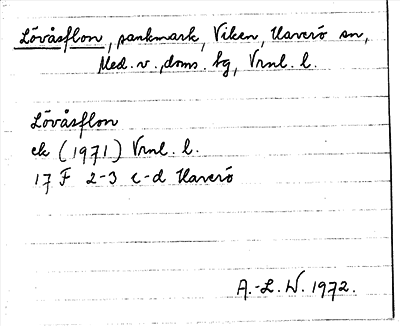 Lövåsflon, sankmark, Viken, Haverö sn,
Med. v. doms. hg, Vrnl. l.
Lövåsflon
ek (1971) Vrnl. l.
17 F 2-3 c-d Haverö
A.-L. W. 1972.